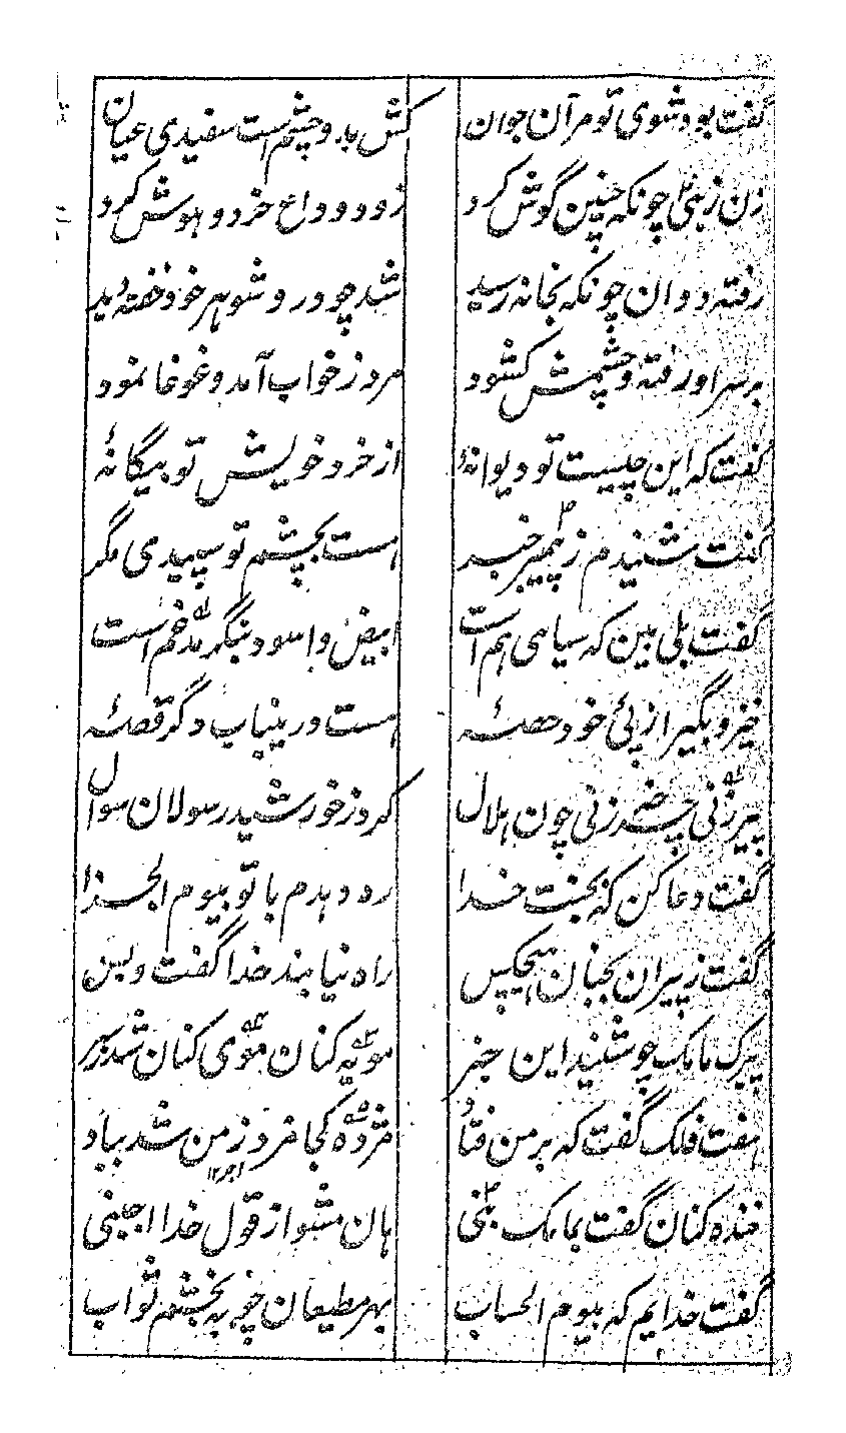 گفت بود شوی تو مر آن جوان کش بدو چشم است سفیدی عیان
زن ز نبی چونکه چنین گوش کرد زود وداع خرد و هوش کرد
رفته دوان چونکه بخانه رسید شد چو درو شوهر خود خفته دید
بر سر او رفته و چشمش کشود مرد ز خواب آمد و غوغا نمود
گفت که این چیست تو دیوانهٔ از خرد خویش تو بیگانهٔ
گفت شنیدم ز پیمبر خبر است بچشم تو سپیدی مگر
گفت بلی بین که سیاهی هم است ابیض و اسود بنگر مدغم است
خیز و بگیر از پئ خود حصهٔ هست درینباب دگر قصهٔ
پیرزنی چند زنی چون هلال کرد ز خورشید رسولان سوال
گفت دعا کن که بجنت خدا ره دهدم با تو بیوم الجزا
گفت ز پیران بجنان هیچکس راه نیابند خدا گفت و بس
پیرک مامک چو شنید این خبر مویه کنان موی کنان شد بسر
هفت فلک گفت که بر من فتاد مژده کجا مرد ز من شد بباد
خنده کنان گفت بمامک نبی هان مشو از قول خدا اجنبی
گفت خدایم که بیوم الحساب بهر مطیعان چو ببخشم ثواب